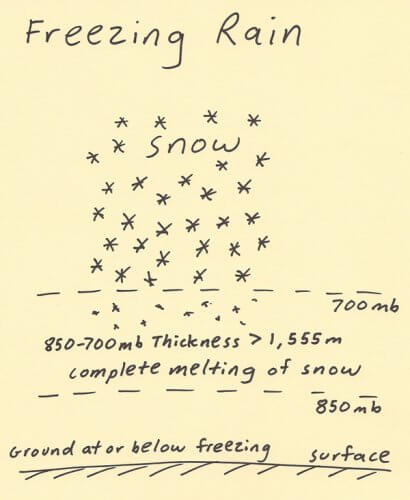 Freezing Rain
snow
700mb
850-700mb Thickness > 1,555m
complete melting of snow
850mb
Ground at or below freezing surface